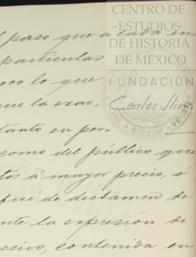 CENTRO DE
ESTUDIOS
DE HISTORIA
DE MÉXICO
FUNDACIÓN
Carlos Slim
l paso que a cada un
particulas
oco lo que
que la exac-
tanto en por-
como del público que
tos á mayor precio, ó
fuí de dictamen de
nte la expresión de
esivo, contenida en